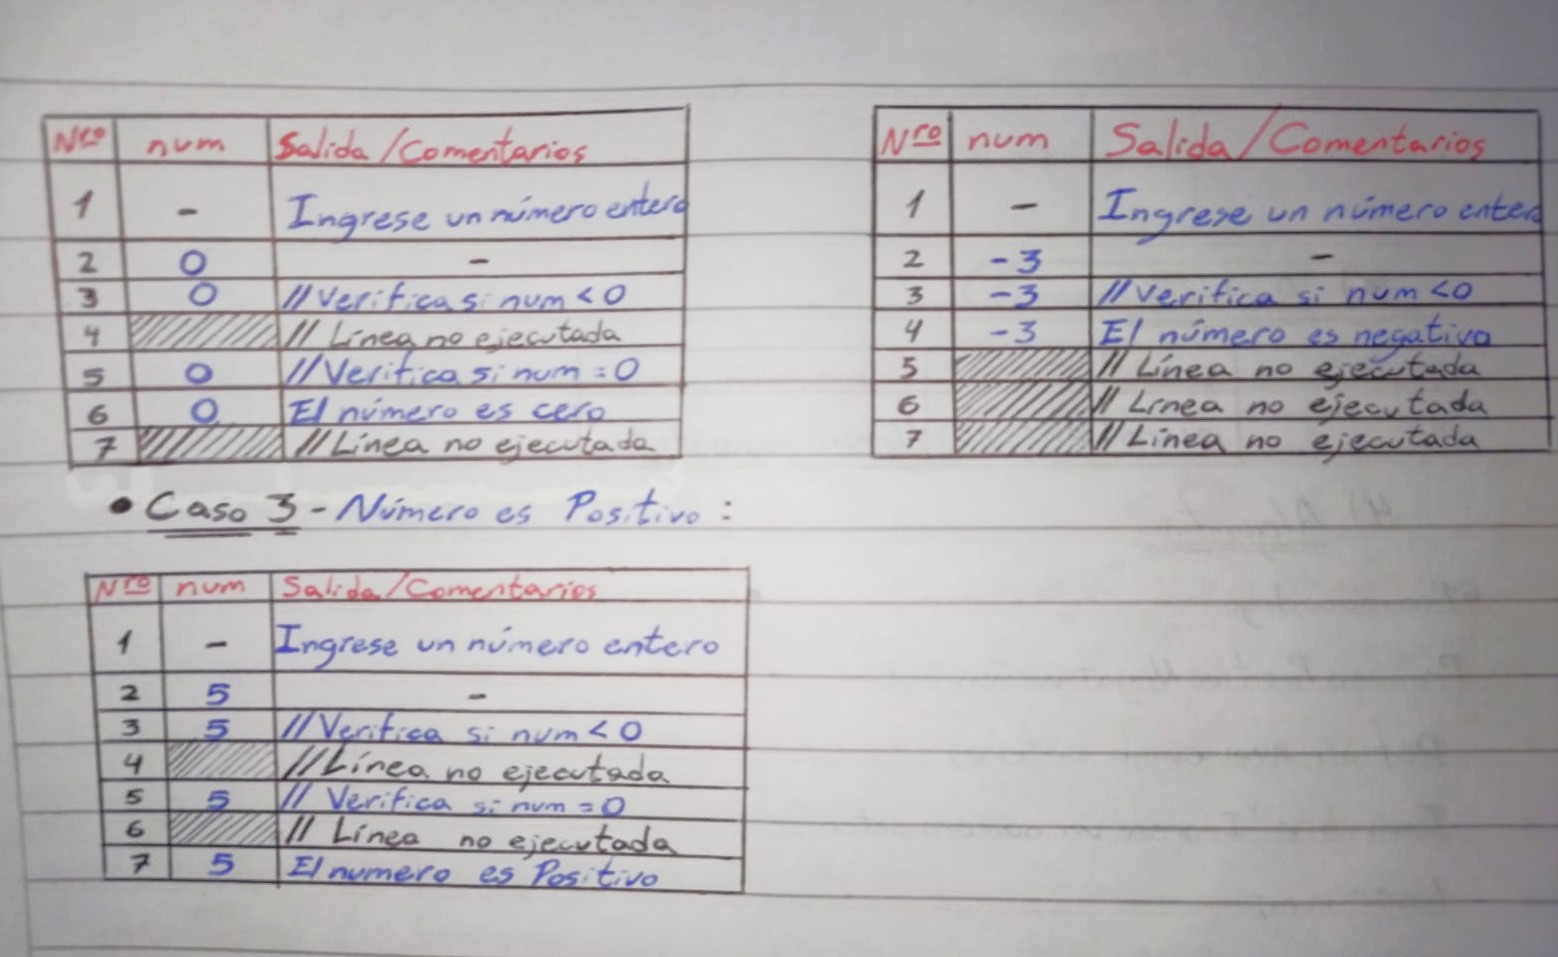 Nro num Salida/Comentarios
1 - Ingrese un número entero
2 0 -
3 0 //Verifica si num < 0
4 // Línea no ejecutada
5 0 //Verifica si num = 0
6 0 El número es cero
7 //Línea no ejecutada
Nro num Salida/Comentarios
1 - Ingrese un número entero
2 -3 -
3 -3 //Verifica si num <0
4 -3 El número es negativo
5 // Línea no ejecutada
6 // Línea no ejecutada
7 // Línea no ejecutada
• Caso 3 - Número es Positivo :
Nro num Salida/Comentarios
1 - Ingrese un número entero
2 5 -
3 5 //Verifica si num < 0
4 //Línea no ejecutada
5 5 // Verifica si num = 0
6 // Línea no ejecutada
7 5 El numero es Positivo